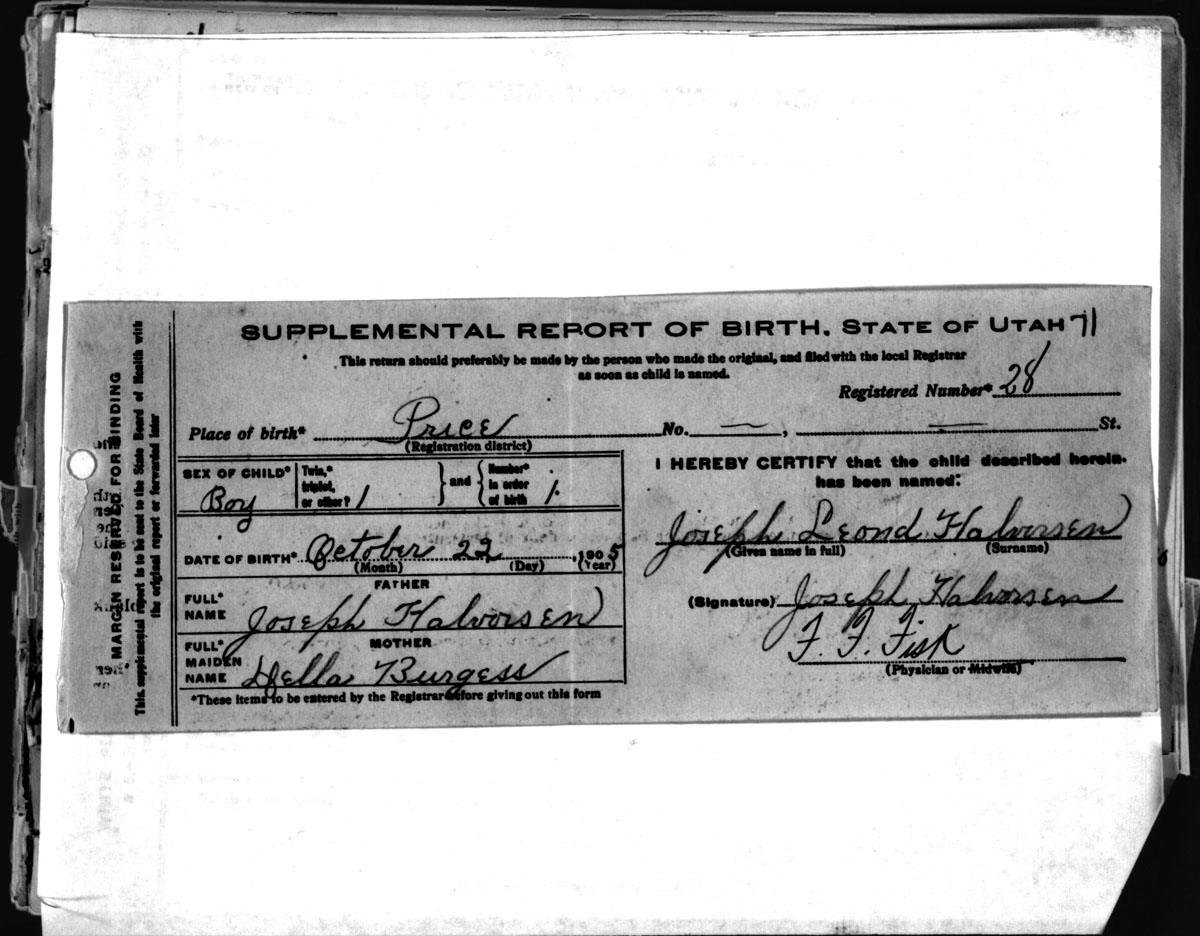 SUPPLEMENTAL REPORT OF BIRTH. STATE OF UTAH 71
This return should preferably be made by the person who made the original, and filed with the local Registrar
as soon as child is named.
Registered Number* 28
Place of birth* Price No. — , — St.
(Registration district)
SEX OF CHILD* Boy
Twin,* triplet, or other? 1 } and { Number* in order of birth 1.
DATE OF BIRTH* October 22, 1905
(Month) (Day) (Year)
FATHER
FULL* NAME Joseph Halvorsen
MOTHER
FULL* MAIDEN NAME Della Burgess
*These items to be entered by the Registrar before giving out this form
I HEREBY CERTIFY that the child described herein
has been named:
Joseph Leond Halvorsen
(Given name in full) (Surname)
(Signature) Joseph Halvorsen
F. F. Fisk
(Physician or Midwife)
MARGIN RESERVED FOR BINDING
This supplemental report is to be sent to the State Board of Health with
the original report or forwarded later